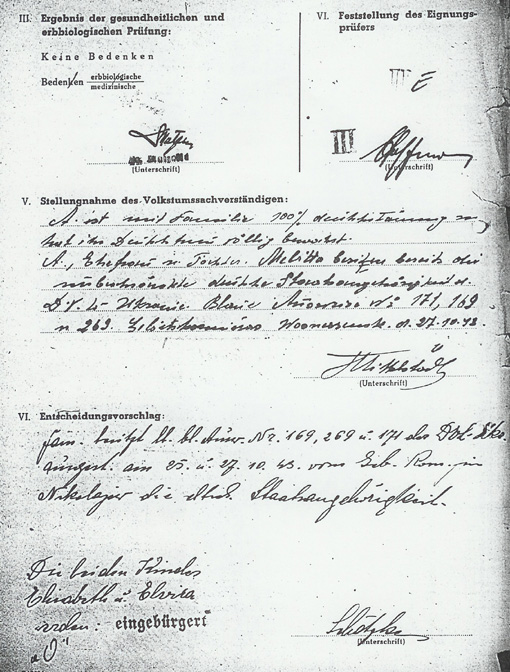 III. Ergebnis der gesundheitlichen und
erbbiologischen Prüfung:
Keine Bedenken
Bedenken erbbiologische
medizinische
(Unterschrift)
VI. Feststellung des Eignungs-
prüfers
III
(Unterschrift)
V. Stellungnahme des Volkstumssachverständigen:
A. ist mit Familie 100% deutschstämmig u.
hat ihr Deutschtum völlig bewahrt.
A., Ehefrau u. Tochter Melitta besitzen bereits die
deutsche Staatsangehörigkeit
Ukraine Blaue Ausweise No 171, 169
u 269. 27.10.43.
(Unterschrift)
VI. Entscheidungsvorschlag:
Fam. besitzt lt. bl. Ausw. Nr. 169, 269 u. 171 der
am 25. u. 27.10.43. vom Geb. Kom. in
Nikolajew die dtsch. Staatsangehörigkeit.
Die beiden Kinder
Elisabeth u. Elvira
werden: eingebürgert
"O"
(Unterschrift)